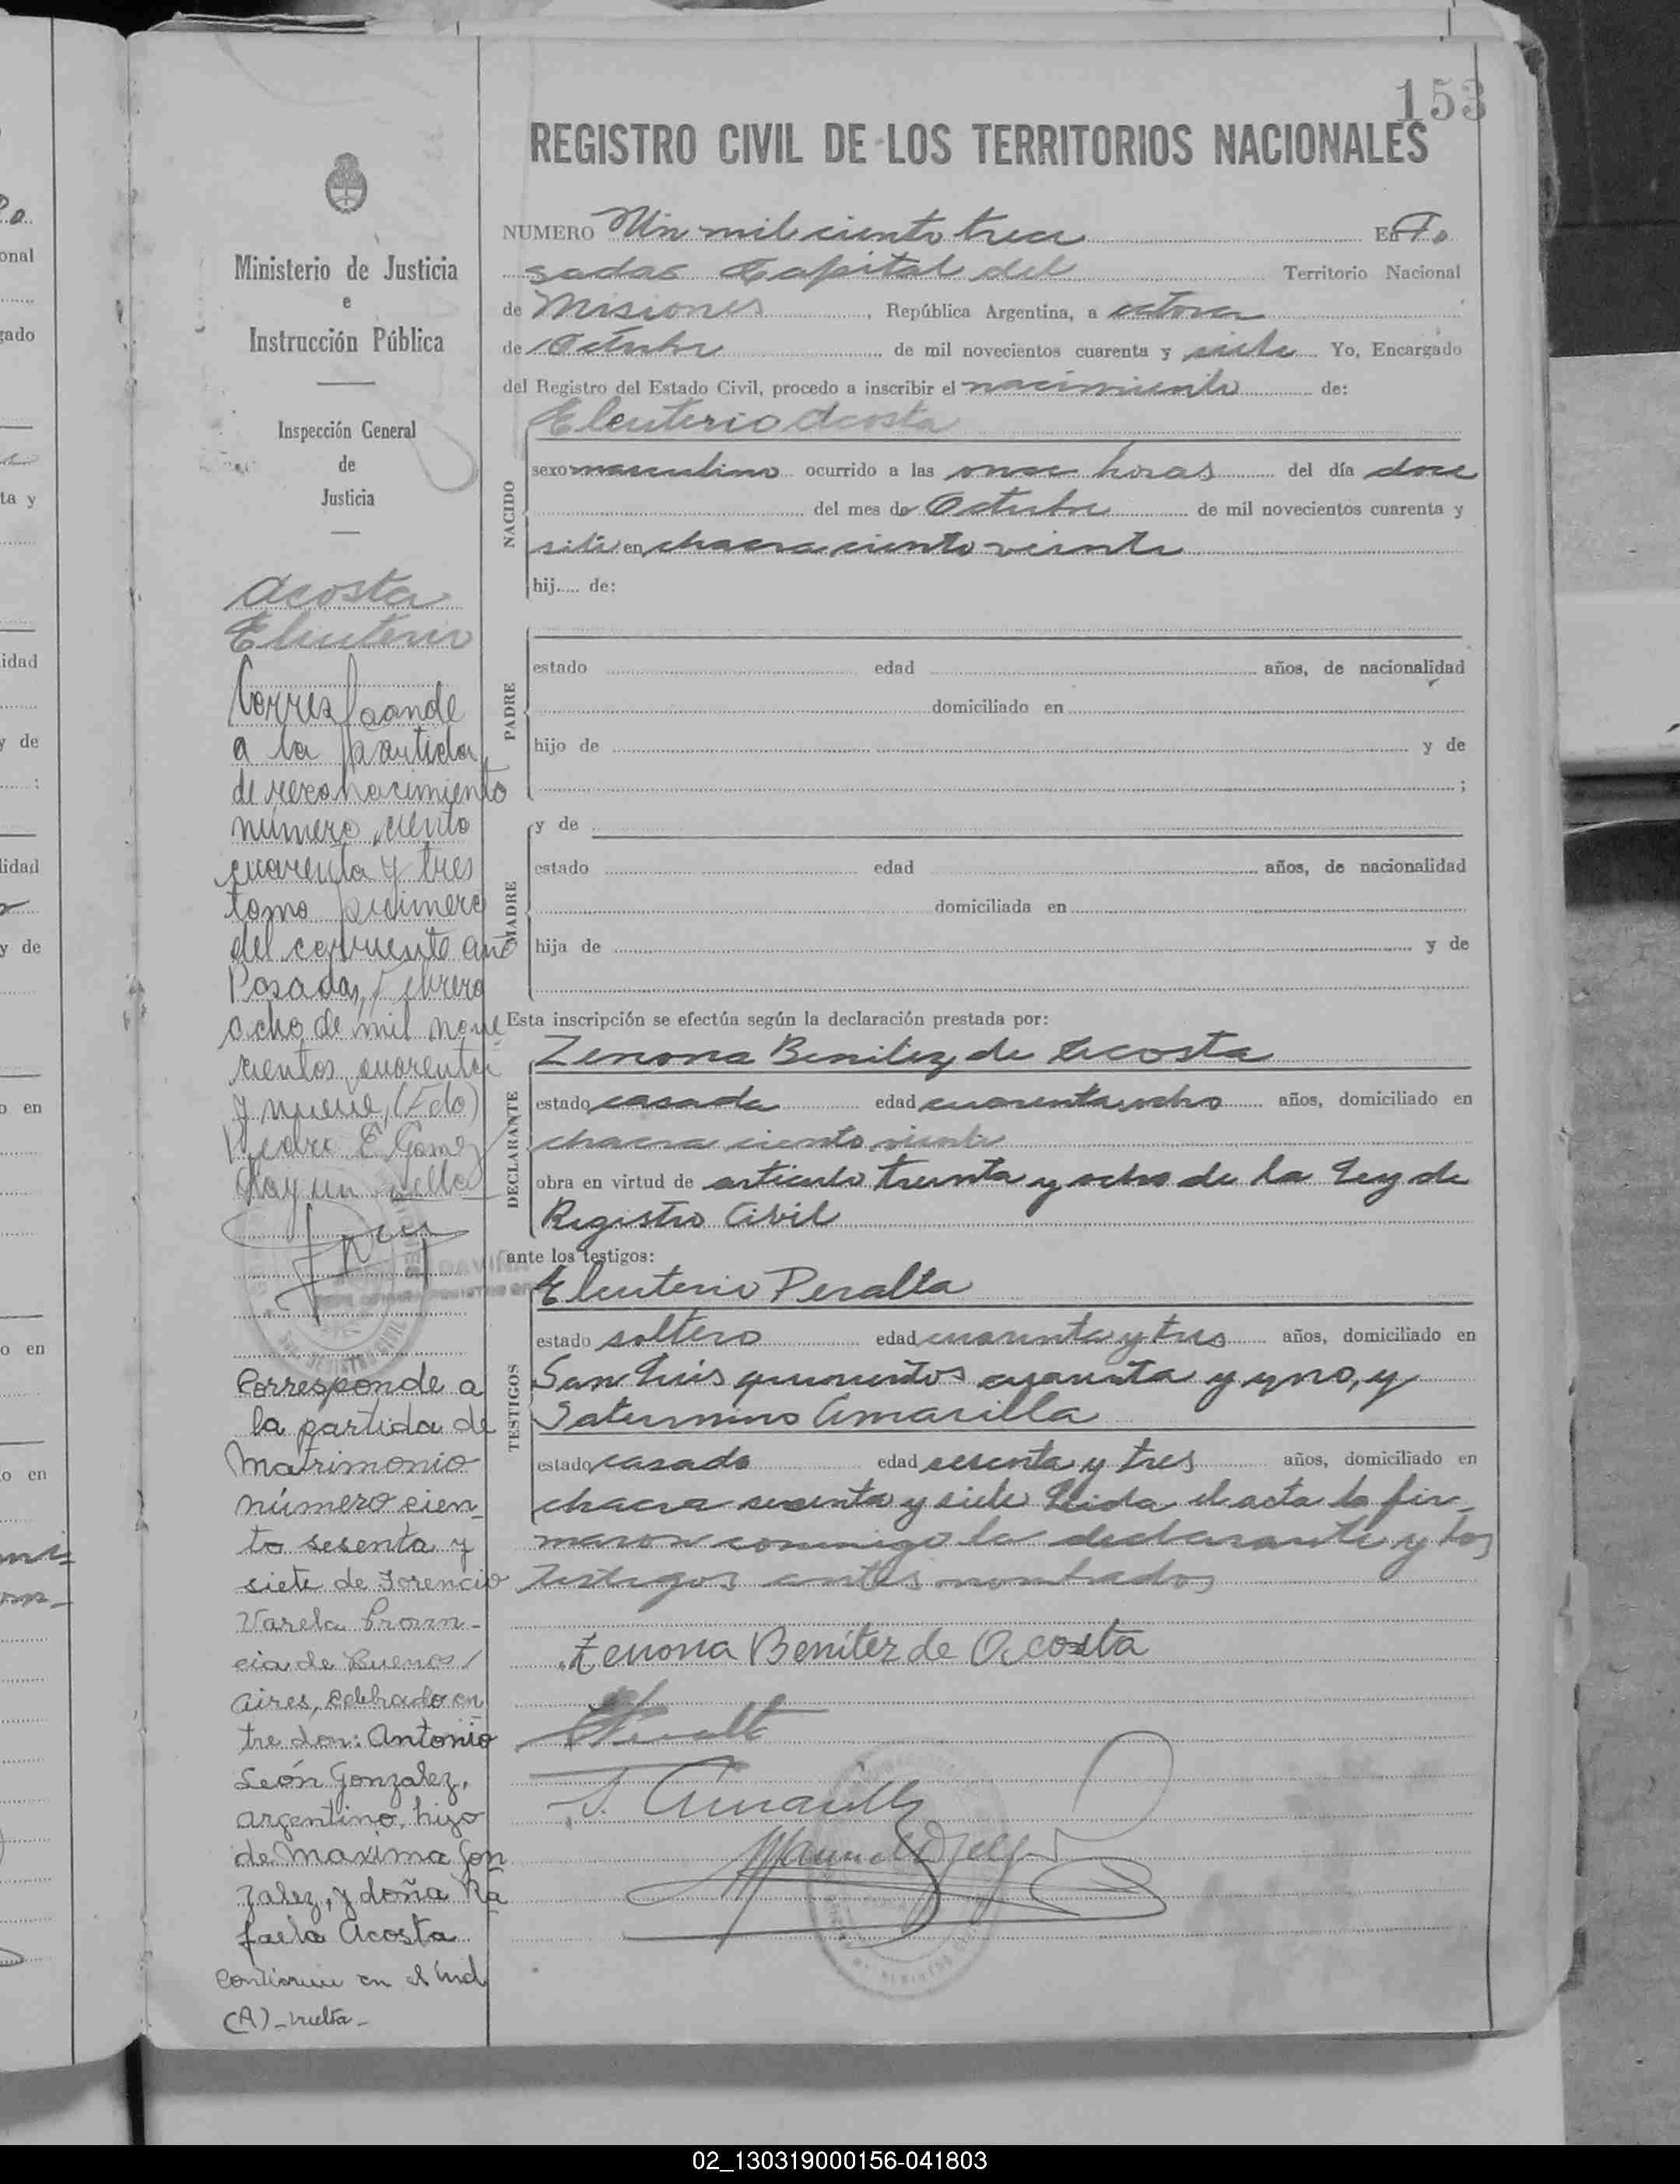 153
REGISTRO CIVIL DE LOS TERRITORIOS NACIONALES
Ministerio de Justicia
e
Instrucción Pública
Inspección General
de
Justicia
NUMERO Un mil ciento trece En Po
sadas Capital del Territorio Nacional
de Misiones, República Argentina, a catorce
de Octubre de mil novecientos cuarenta y siete Yo, Encargado
del Registro del Estado Civil, procedo a inscribir el nacimiento de:
NACIDO
Eleuterio Acosta
sexo masculino ocurrido a las once horas del día doce
del mes de Octubre de mil novecientos cuarenta y
siete en chacra ciento veinte
hij..... de:
PADRE
estado edad años, de nacionalidad
domiciliado en
hijo de y de
;
MADRE
y de
estado edad años, de nacionalidad
domiciliada en
hija de y de
Esta inscripción se efectúa según la declaración prestada por:
DECLARANTE
Zenona Benitez de Acosta
estado casada edad cuarentaiocho años, domiciliado en
chacra ciento veinte
obra en virtud de articulo treinta y ocho de la Ley de
Registro Civil
ante los testigos:
TESTIGOS
Eleuterio Peralta
estado soltero edad cuarenta y tres años, domiciliado en
San Luis quinientos cuarenta y uno, y
Saturnino Amarilla
estado casado edad sesenta y tres años, domiciliado en
chacra sesenta y siete Leida el acta la fir-
maron conmigo la declarante y los
testigos antes nombrados
Zenona Benitez de Acosta
S. Amarilla
Acosta
Eleuterio
Corresponde
a la partida
de reconocimiento
número ciento
cuarenta y tres
tomo primero
del corriente año
Posadas, Febrero
ocho de mil nove
cientos cuarenta
y nueve, (Fdo)
Pedro E. Gomez
Hay un sello
Corresponde a
la partida de
Matrimonio
número cien-
to sesenta y
siete de Florencio
Varela Provin-
cia de Buenos
Aires, celebrado en
tre don: Antonio
León Gonzalez,
argentino, hijo
de Maxima Gon
zalez, y doña Ra
faela Acosta
continua en el Ind
(A) - vuelta -
02_130319000156-041803